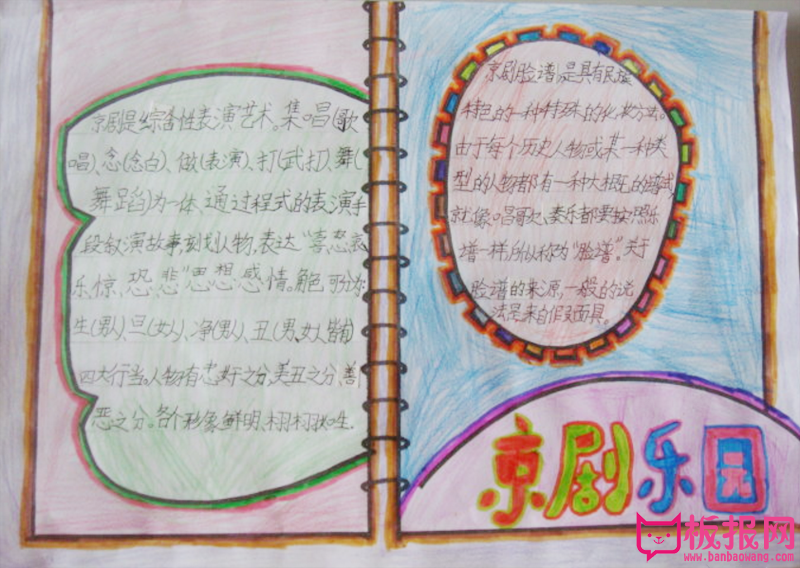 京剧是综合性表演艺术。集唱(歌
唱)、念(念白)、做(表演)、打(武打)、舞(
舞蹈)为一体、通过程式的表演手
段叙演故事,刻划人物,表达“喜怒哀
乐、惊、恐、悲”思想感情。角色可分为
生(男人)、旦(女人)、净(男人)、丑(男、女人皆有)
四大行当。人物有忠奸之分,美丑之分、善
恶之分。各个形象鲜明、栩栩如生.
京剧脸谱,是具有民族
特色的一种特殊的化妆方法。
由于每个历史人物或某一种类
型的人物都有一种大概的谱式,
就像唱歌、奏乐都要按照乐
谱一样,所以称为“脸谱”。关于
脸谱的来源,一般的说
法是来自假面具。
京剧乐园
板报网
www.banbaowang.com